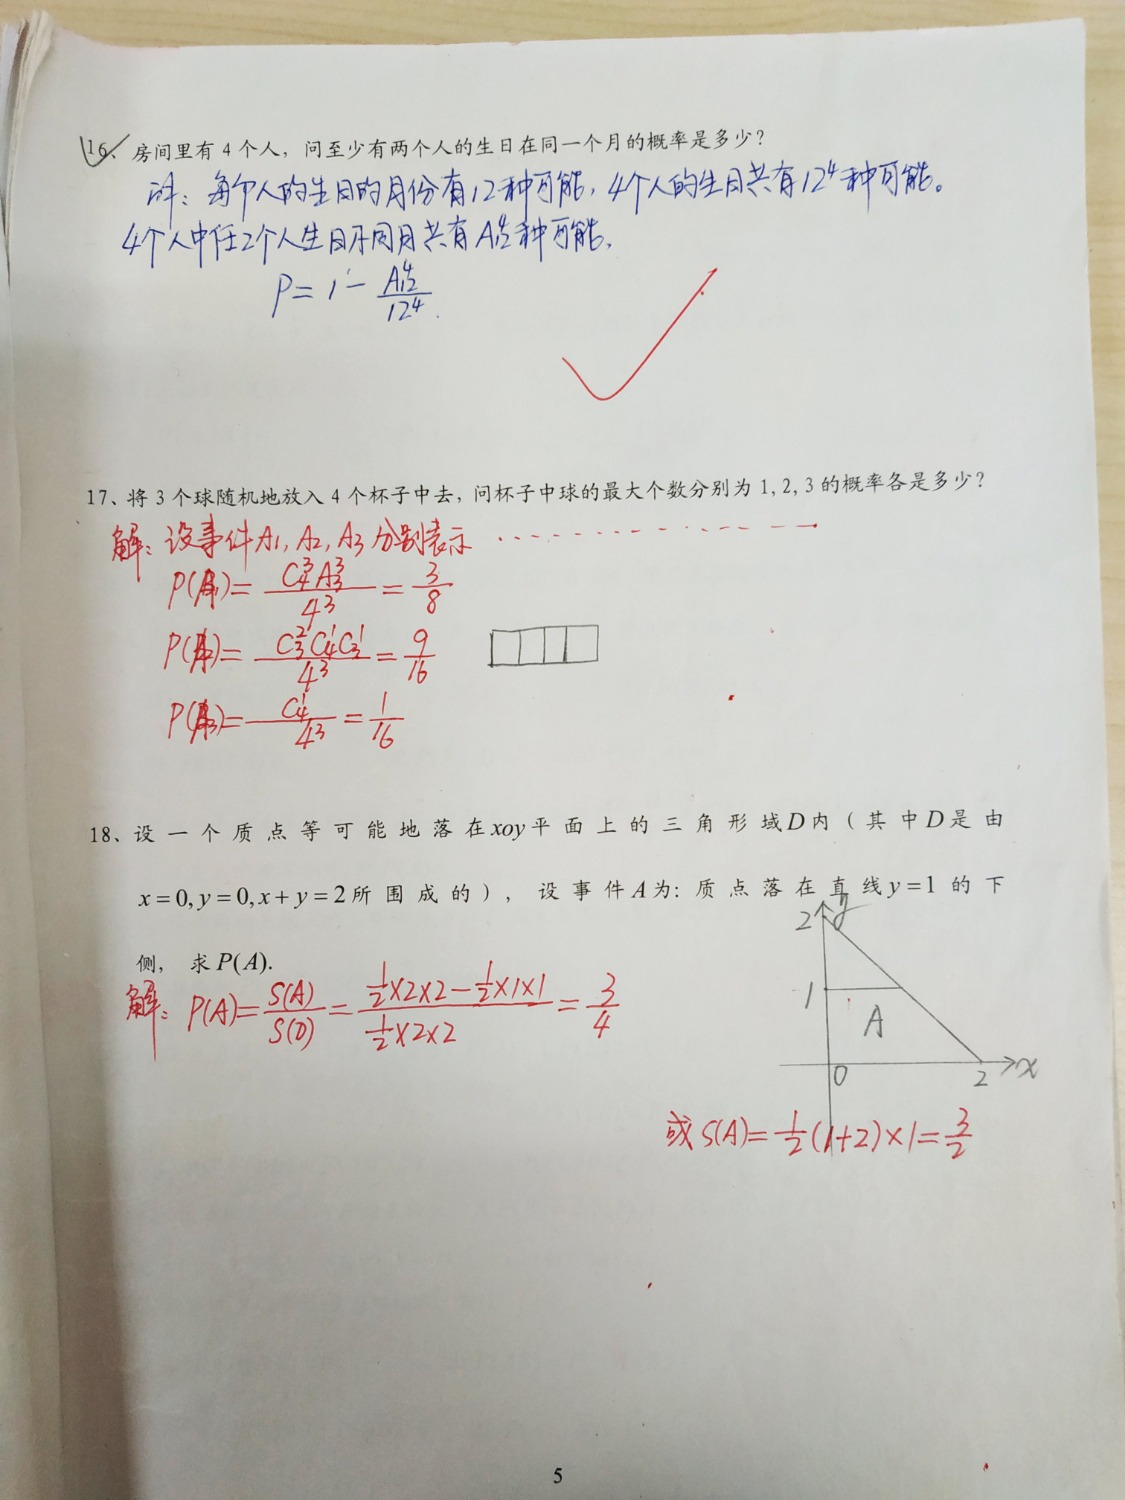 16、房间里有 4 个人，问至少有两个人的生日在同一个月的概率是多少？
解：每个人的生日的月份有12种可能，4个人的生日共有12⁴种可能。
4个人中任2个人生日不同月共有A₁₂⁴种可能，
P=1-A₁₂⁴/12⁴
17、将 3 个球随机地放入 4 个杯子中去，问杯子中球的最大个数分别为 1, 2, 3 的概率各是多少？
解：设事件A₁, A₂, A₃分别表示……
P(A₁)=C₄³A₃³/4³=3/8
P(A₂)=C₃²C₄¹C₃¹/4³=9/16
P(A₃)=C₄¹/4³=1/16
18、设一个质点等可能地落在xoy平面上的三角形域D内（其中D是由
x=0,y=0,x+y=2所围成的），设事件A为：质点落在直线y=1的下
侧，求P(A).
解：P(A)=S(A)/S(D)=(1/2×2×2-1/2×1×1)/(1/2×2×2)=3/4
2 y
1
A
0 2 x
或S(A)=1/2(1+2)×1=3/2
5